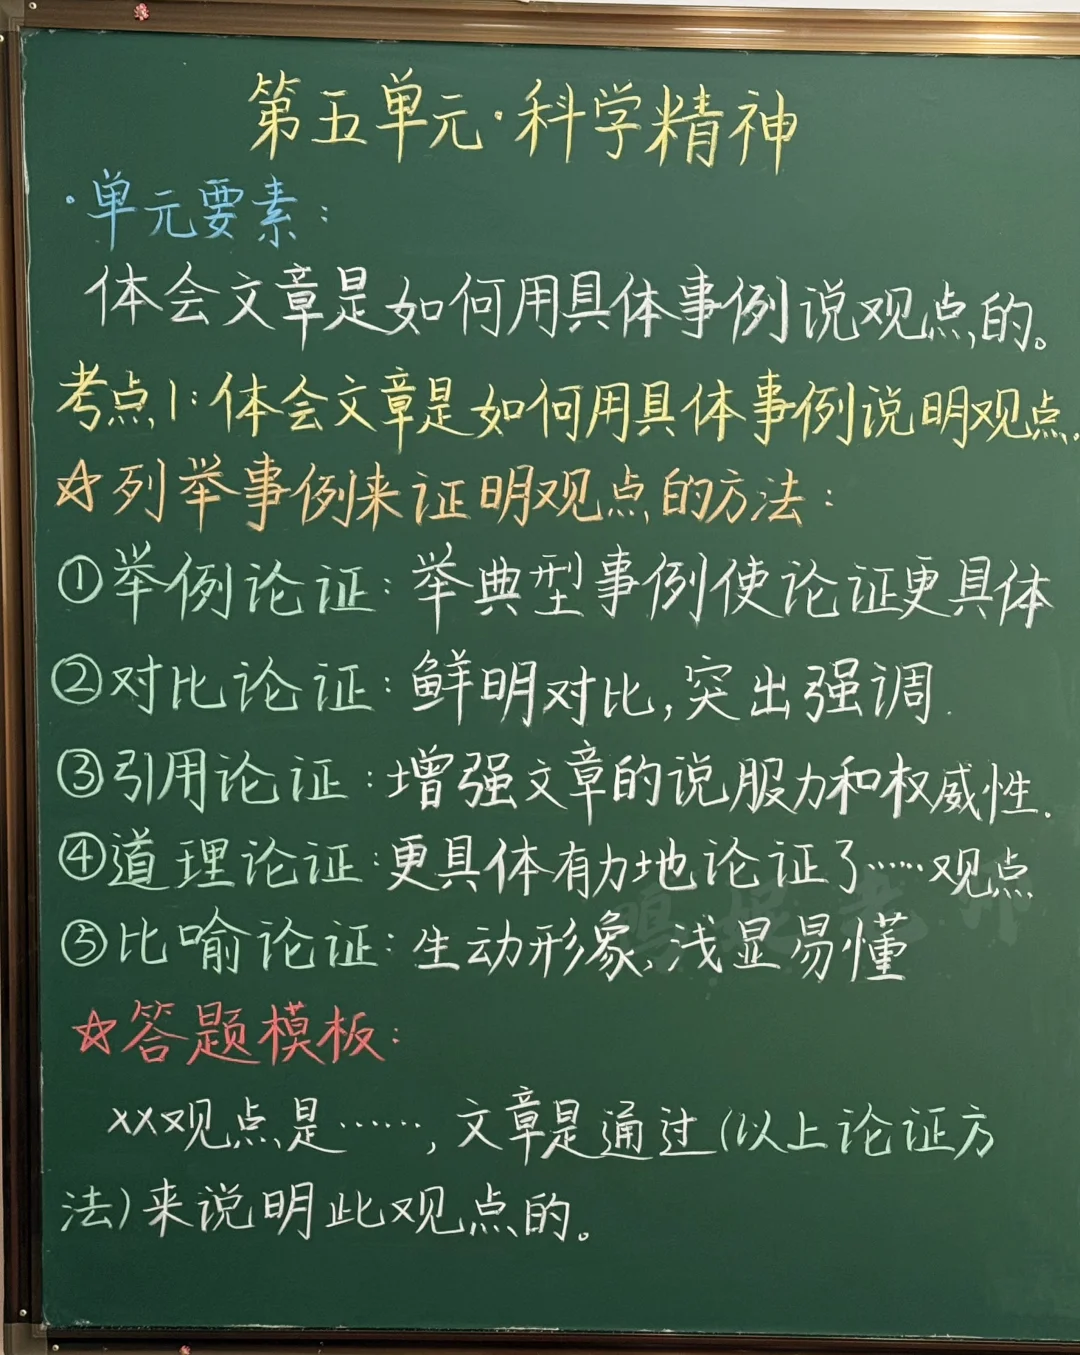 第五单元·科学精神
·单元要素：
体会文章是如何用具体事例说观点的。
考点1：体会文章是如何用具体事例说明观点.
☆列举事例来证明观点的方法：
①举例论证：举典型事例使论证更具体
②对比论证：鲜明对比，突出强调.
③引用论证：增强文章的说服力和权威性.
④道理论证：更具体有力地论证了……观点
⑤比喻论证：生动形象，浅显易懂
☆答题模板：
××观点是……，文章是通过(以上论证方
法)来说明此观点的。